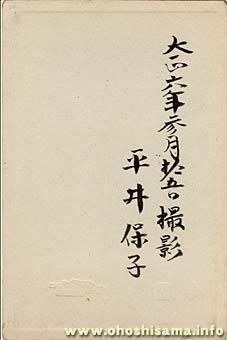 大正六年参月拾五日撮影
平井保子
www.ohoshisama.info